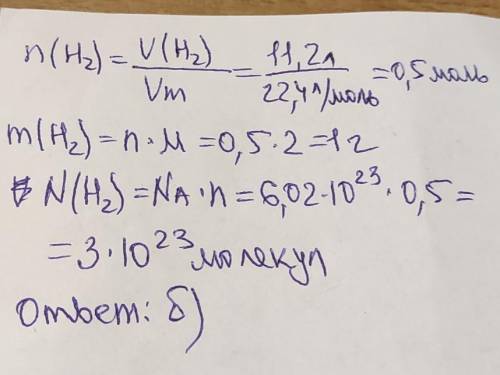 n(H₂) = V(H₂)/Vm = 11,2л/22,4л/моль = 0,5 моль
m(H₂) = n · M = 0,5 · 2 = 1г
N(H₂) = NA · n = 6,02 · 10²³ · 0,5 =
= 3 · 10²³ молекул
Ответ: б)